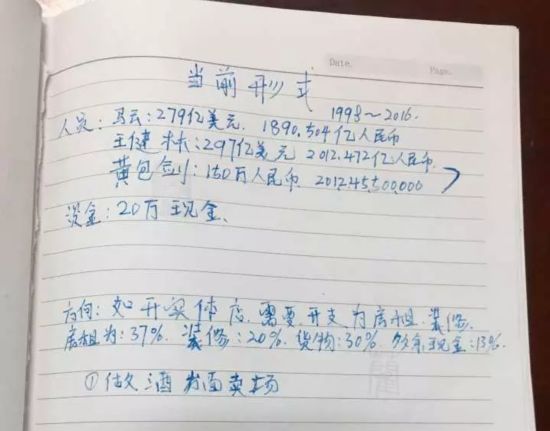 Date.
Page.
当前形式
1998~2016.
人员:马云:279亿美元. 1890.504亿人民币
王健林:297亿美元 2012.472亿人民币.
黄包剑:150万人民币. 201245,500,000
资金:20万 现金.
方向:如开实体店,需要开支为房租.装修.
房租为:37%. 装修:20%. 货物:30%. 现金:13%.
①做 酒 卖场